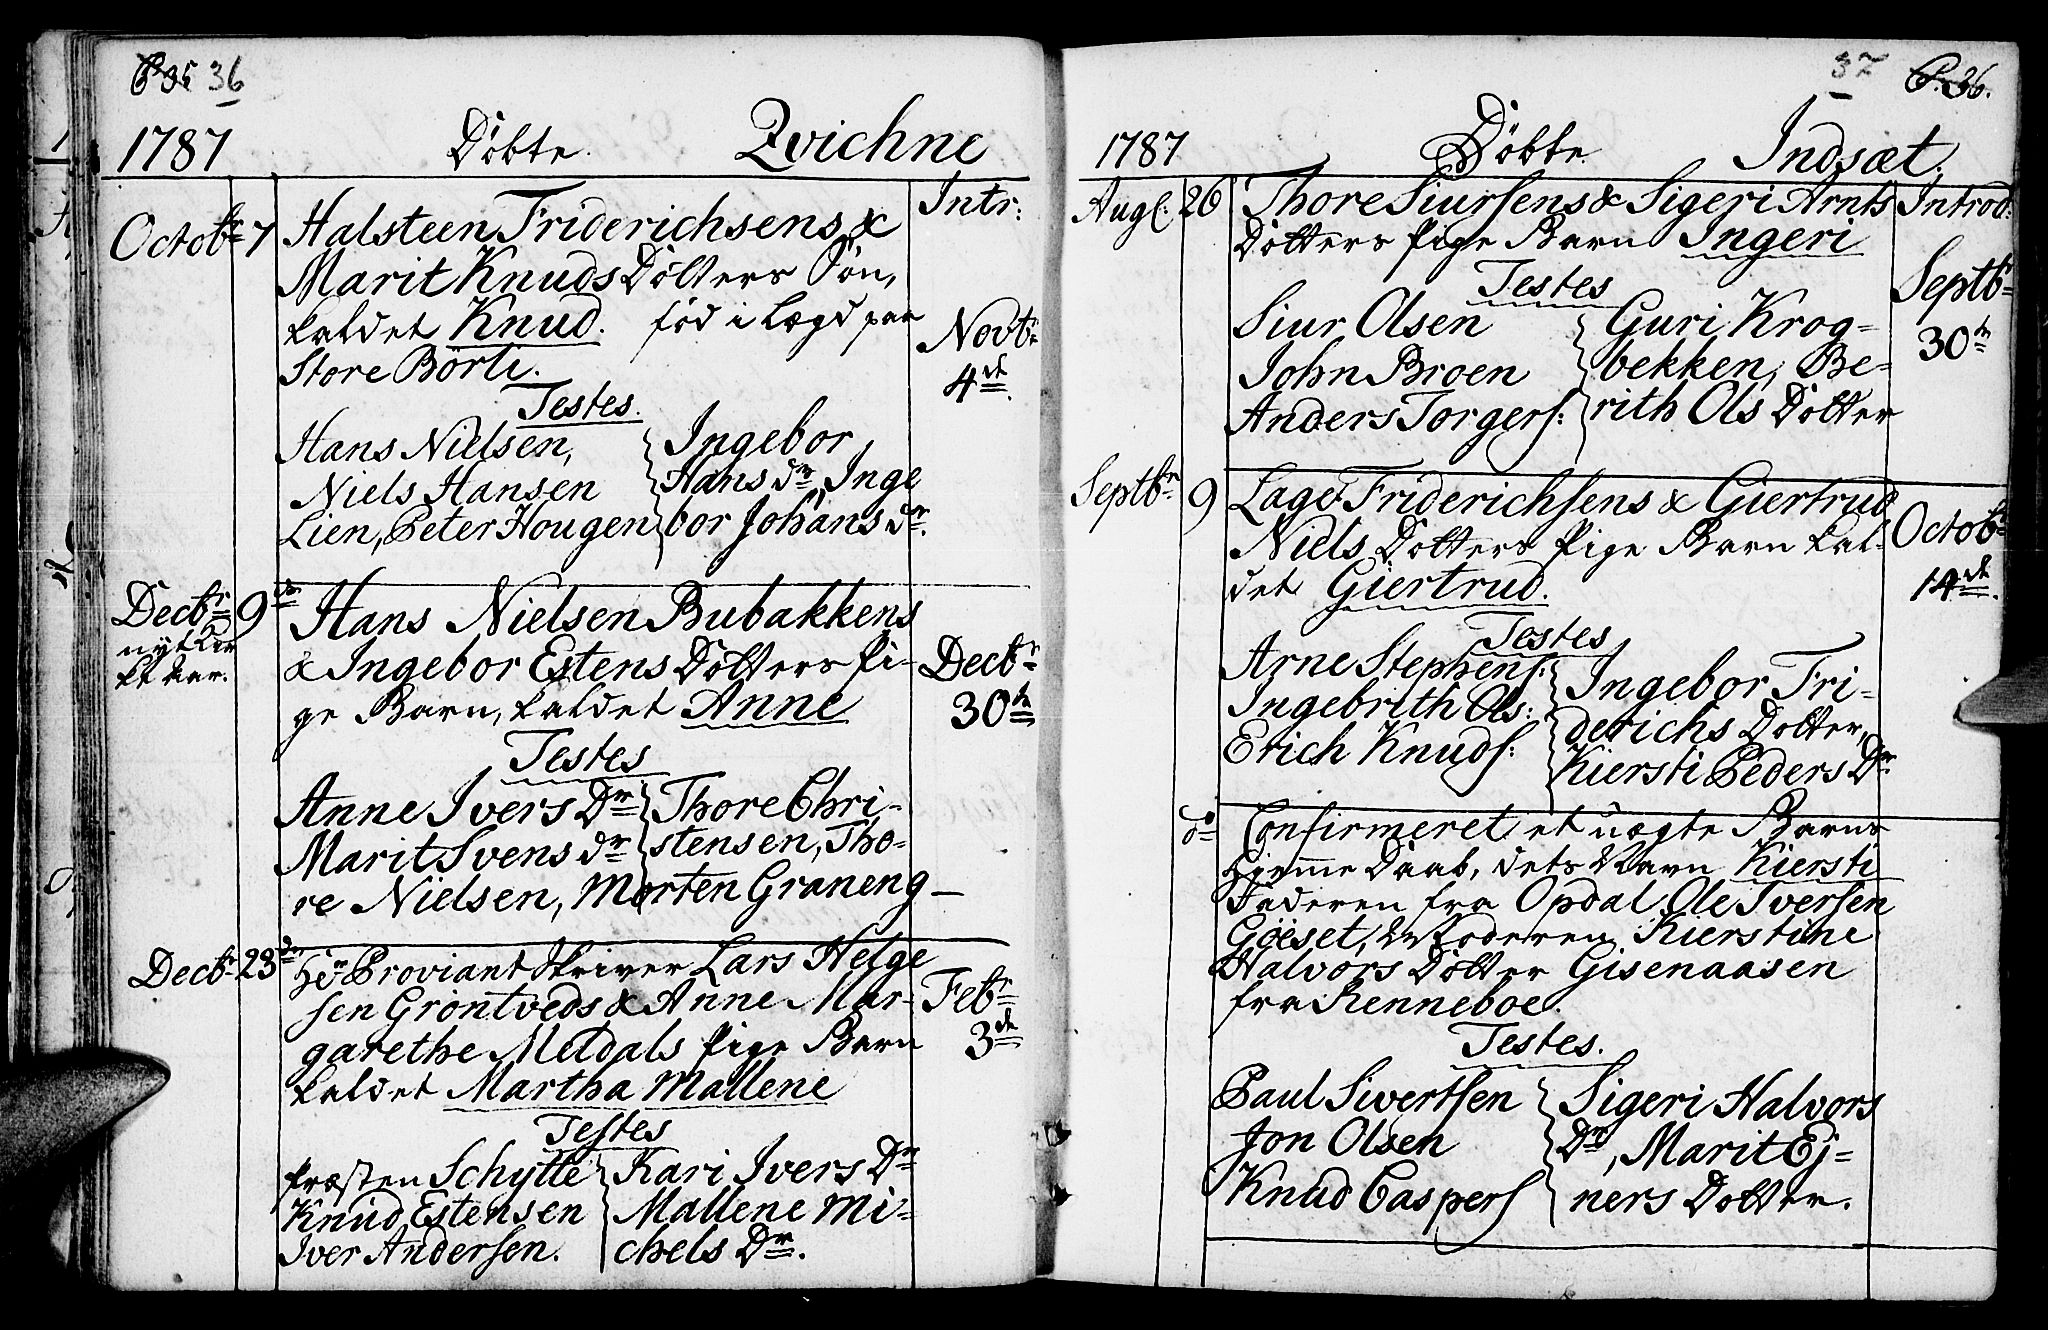 P. 35 36
1787 Döbte. Qvichne
Intr:
Octobr 7 Halsteen Friderichsens &
Marit Knuds Dotters Sön,
kaldet Knud. född i Lægd paa
Store Börli.
Novbr
4de
Testes.
Hans Nielsen,
Niels Hansen
Lien, Peter Hougen
Ingebor
Hans dr, Inge
bor Johans dr.
Decbr 9de Hans Nielsen Bubakkens
nyt Kir
ke Aar.
& Ingebor Estens Dotters Pi-
ge Barn, kaldet Anne
Decbr
30te
Testes
Anne Ivers Dr
Marit Svens dr
Thore Chri-
stensen, Tho-
re Nielsen, Morten Graneng
Decbr 23de Hr Proviantskriver Lars Helge
sen Gröntveds & Anne Mar-
garethe Meldals Pige Barn
kaldet Martha Mallene
Febr
3de
Testes
Præsten Schytte
Knud Estensen
Iver Andersen.
Kari Ivers Dr
Mallene Mi-
chels Dr.
37 P. 36.
1787 Döbte Indsæt.
Aug: 26 Thore Siursens & Sigeri Arnts
Dotters Pige Barn Ingeri
Introd:
Septbr
30te
Testes
Siur Olsen
John Broen
Anders Torgers:
Guri Krog-
bekken, Be-
rith Ols Dotter
Septbr 9 Lage Friderichsens & Giertrud
Niels Dotters Pige Barn kal-
det Giertrud.
Octobr
14de.
Testes
Arne Stephens:
Ingebrith Ols:
Erich Knuds:
Ingebor Fri-
derichs Dotter,
Kiersti Peders Dr
do Confirmeret et uægte Barns
Hjemme Daab, dets Navn Kiersti
Faderen fra Opdal Ole Iversen
Göeset, Moderen Kierstine
Halvors Dotter Gisenaasen
fra Renneboe.
Testes.
Paul Sivertsen
Jon Olsen
Knud Caspers
Sigeri Halvors
Dr, Marit Ej-
ners Dotter.